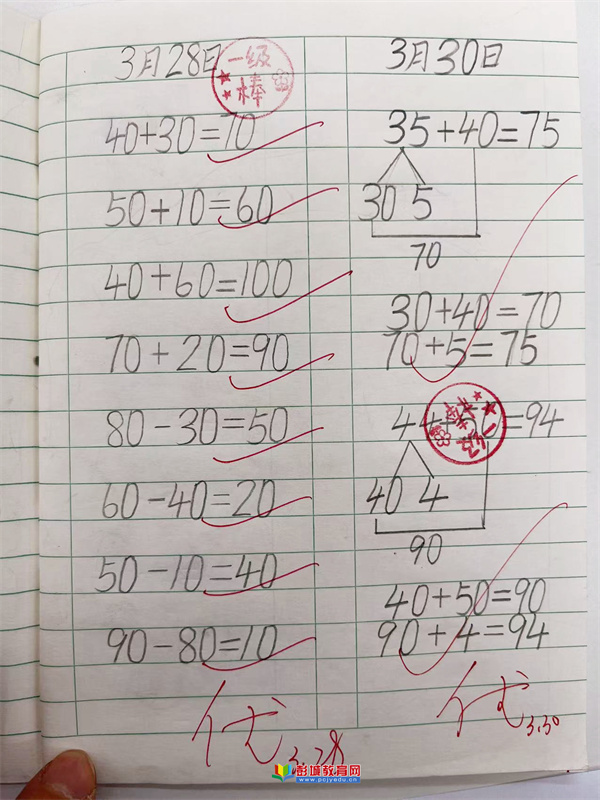 3月28日
一级棒
40+30=70
50+10=60
40+60=100
70+20=90
80-30=50
60-40=20
50-10=40
90-80=10
优
3.28
3月30日
35+40=75
30 5
70
30+40=70
70+5=75
44+50=94
一级棒
40 4
90
40+50=90
90+4=94
优
3.30
彭城教育网
www.pcjyedu.cn